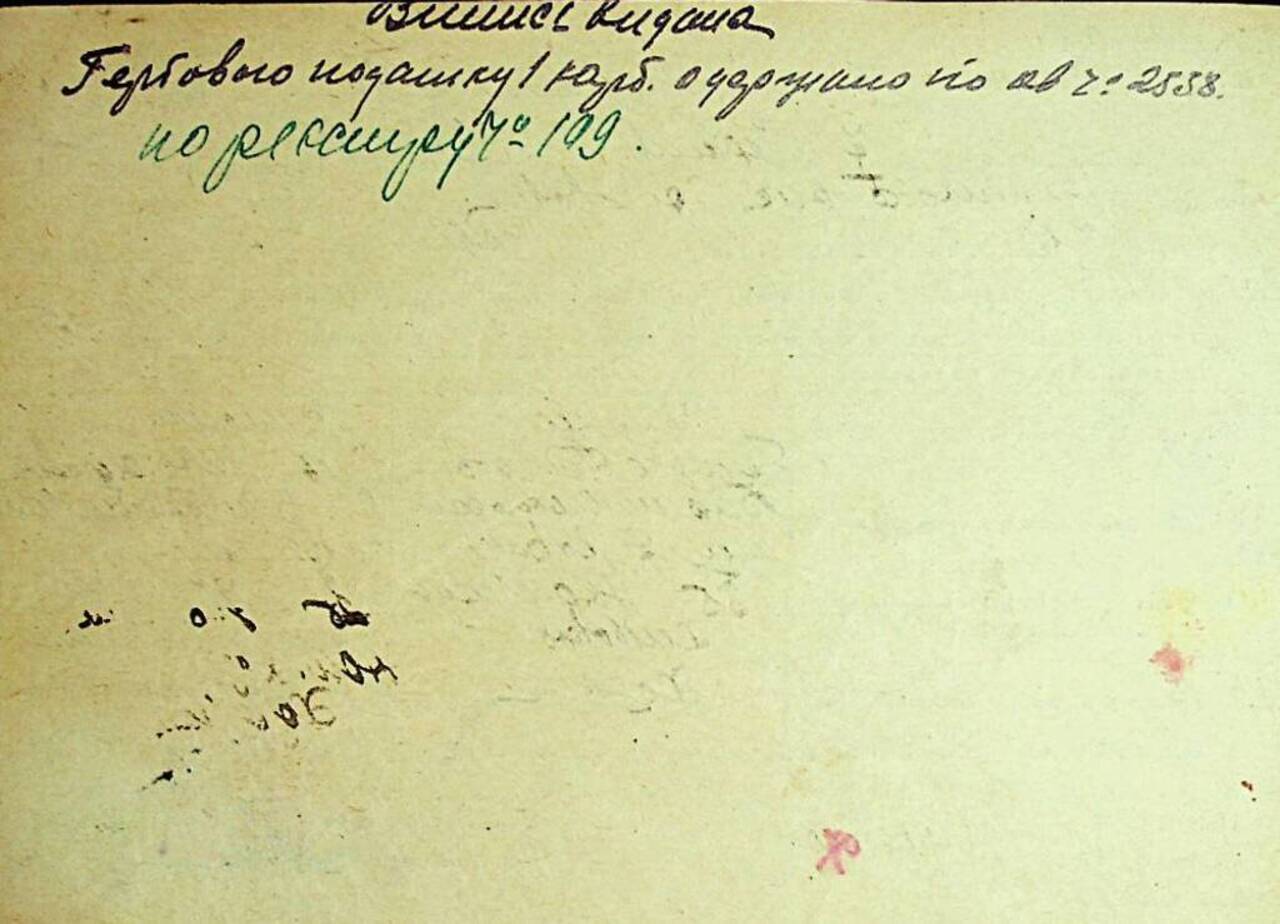 Випись видана
Гербового податку 1 карб. одержано по кв ч. 2538.
по реєстру Ч. 199.